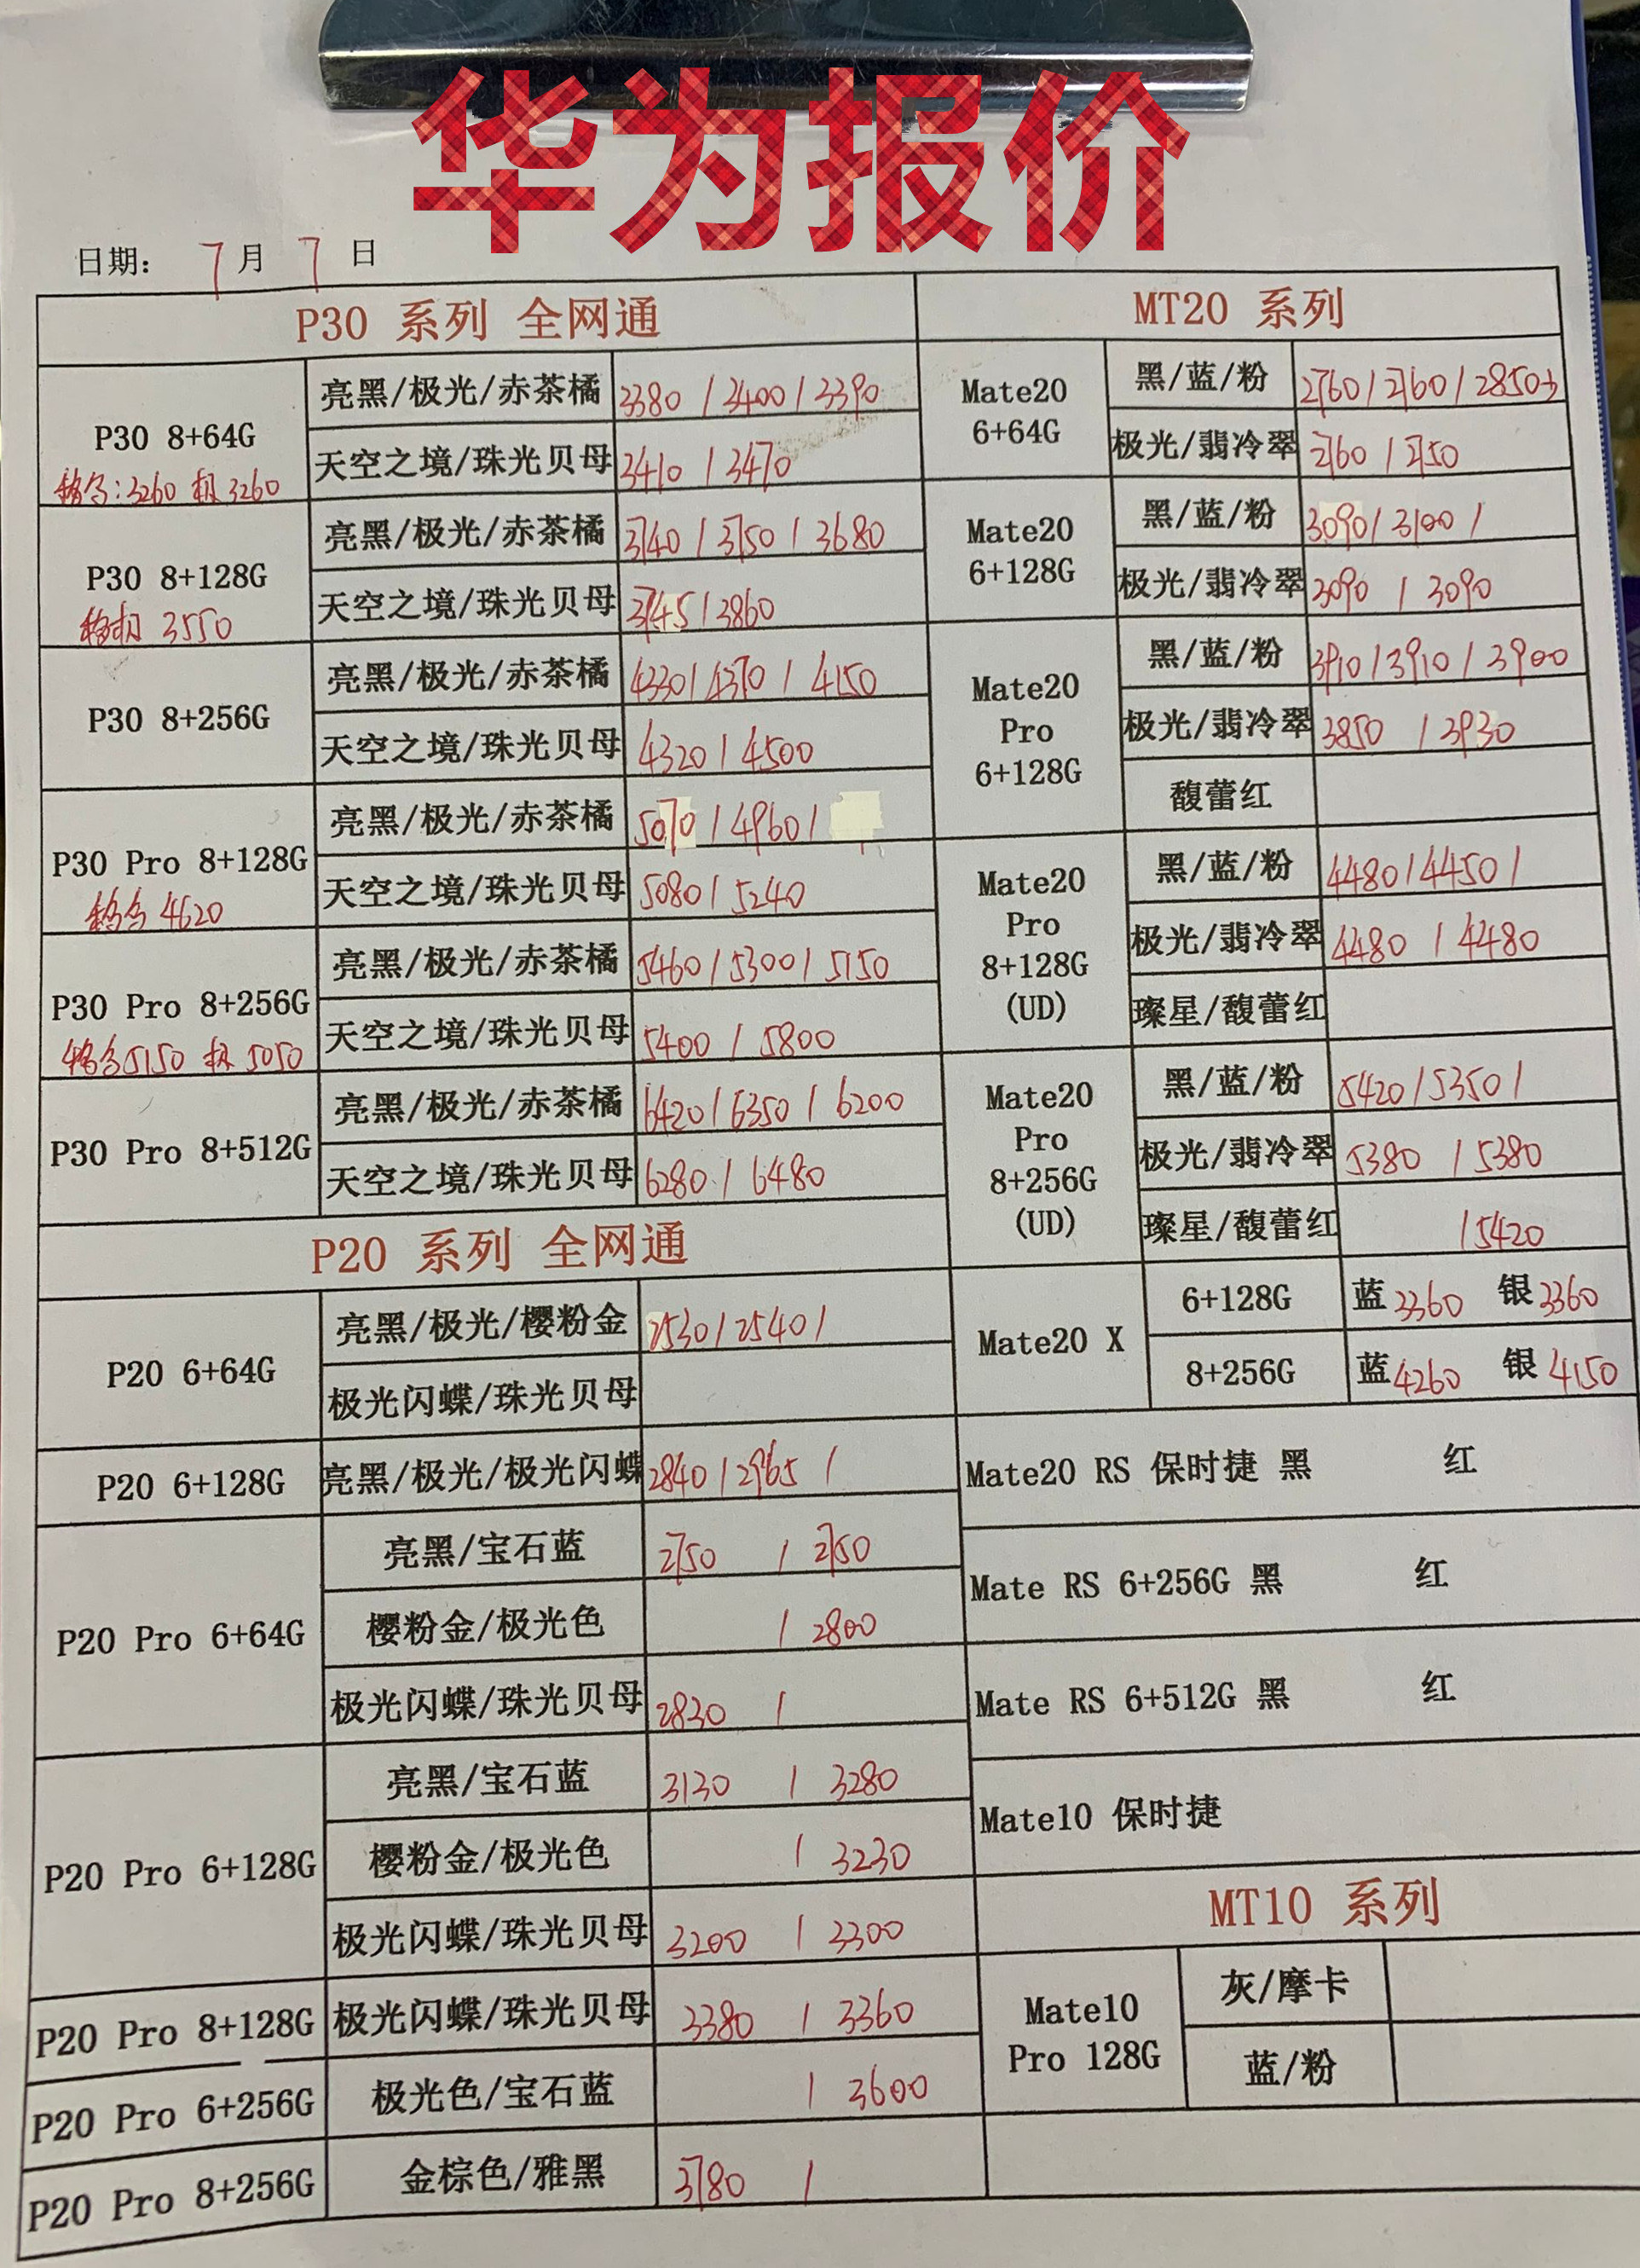 华为报价
日期: 7月 7日
P30 系列 全网通
P30 8+64G
亮黑/极光/赤茶橘 3380 / 3400 / 3390
天空之境/珠光贝母 3410 / 3470
3260 3260
P30 8+128G
亮黑/极光/赤茶橘 3740 / 3750 / 3680
天空之境/珠光贝母 3745 / 3860
3550
P30 8+256G
亮黑/极光/赤茶橘 4330 / 4370 / 4150
天空之境/珠光贝母 4320 / 4500
P30 Pro 8+128G
亮黑/极光/赤茶橘 5070 / 4960 /
天空之境/珠光贝母 5080 / 5240
4620
P30 Pro 8+256G
亮黑/极光/赤茶橘 5460 / 5300 / 5150
天空之境/珠光贝母 5400 / 5800
5150 5050
P30 Pro 8+512G
亮黑/极光/赤茶橘 6420 / 6350 / 6200
天空之境/珠光贝母 6280 / 6480
P20 系列 全网通
P20 6+64G
亮黑/极光/樱粉金 2530 / 2540 /
极光闪蝶/珠光贝母
P20 6+128G
亮黑/极光/极光闪蝶 2840 / 2965 /
P20 Pro 6+64G
亮黑/宝石蓝 2750 / 2750
樱粉金/极光色 / 2800
极光闪蝶/珠光贝母 2830 /
P20 Pro 6+128G
亮黑/宝石蓝 3130 / 3280
樱粉金/极光色 / 3230
极光闪蝶/珠光贝母 3200 / 3300
P20 Pro 8+128G 极光闪蝶/珠光贝母 3380 / 3360
P20 Pro 6+256G 极光色/宝石蓝 / 3600
P20 Pro 8+256G 金棕色/雅黑 3780 /
MT20 系列
Mate20
6+64G
黑/蓝/粉 2760 / 2760 / 2850
极光/翡冷翠 2760 / 2750
Mate20
6+128G
黑/蓝/粉 3090 / 3100 /
极光/翡冷翠 3090 / 3090
Mate20
Pro
6+128G
黑/蓝/粉 3910 / 3910 / 3900
极光/翡冷翠 3850 / 3930
馥蕾红
Mate20
Pro
8+128G
(UD)
黑/蓝/粉 4480 / 4450 /
极光/翡冷翠 4480 / 4480
璨星/馥蕾红
Mate20
Pro
8+256G
(UD)
黑/蓝/粉 5420 / 5350 /
极光/翡冷翠 5380 / 5380
璨星/馥蕾红 / 5420
Mate20 X
6+128G 蓝 3360 银 3360
8+256G 蓝 4260 银 4150
Mate20 RS 保时捷 黑 红
Mate RS 6+256G 黑 红
Mate RS 6+512G 黑 红
Mate10 保时捷
MT10 系列
Mate10
Pro 128G
灰/摩卡
蓝/粉